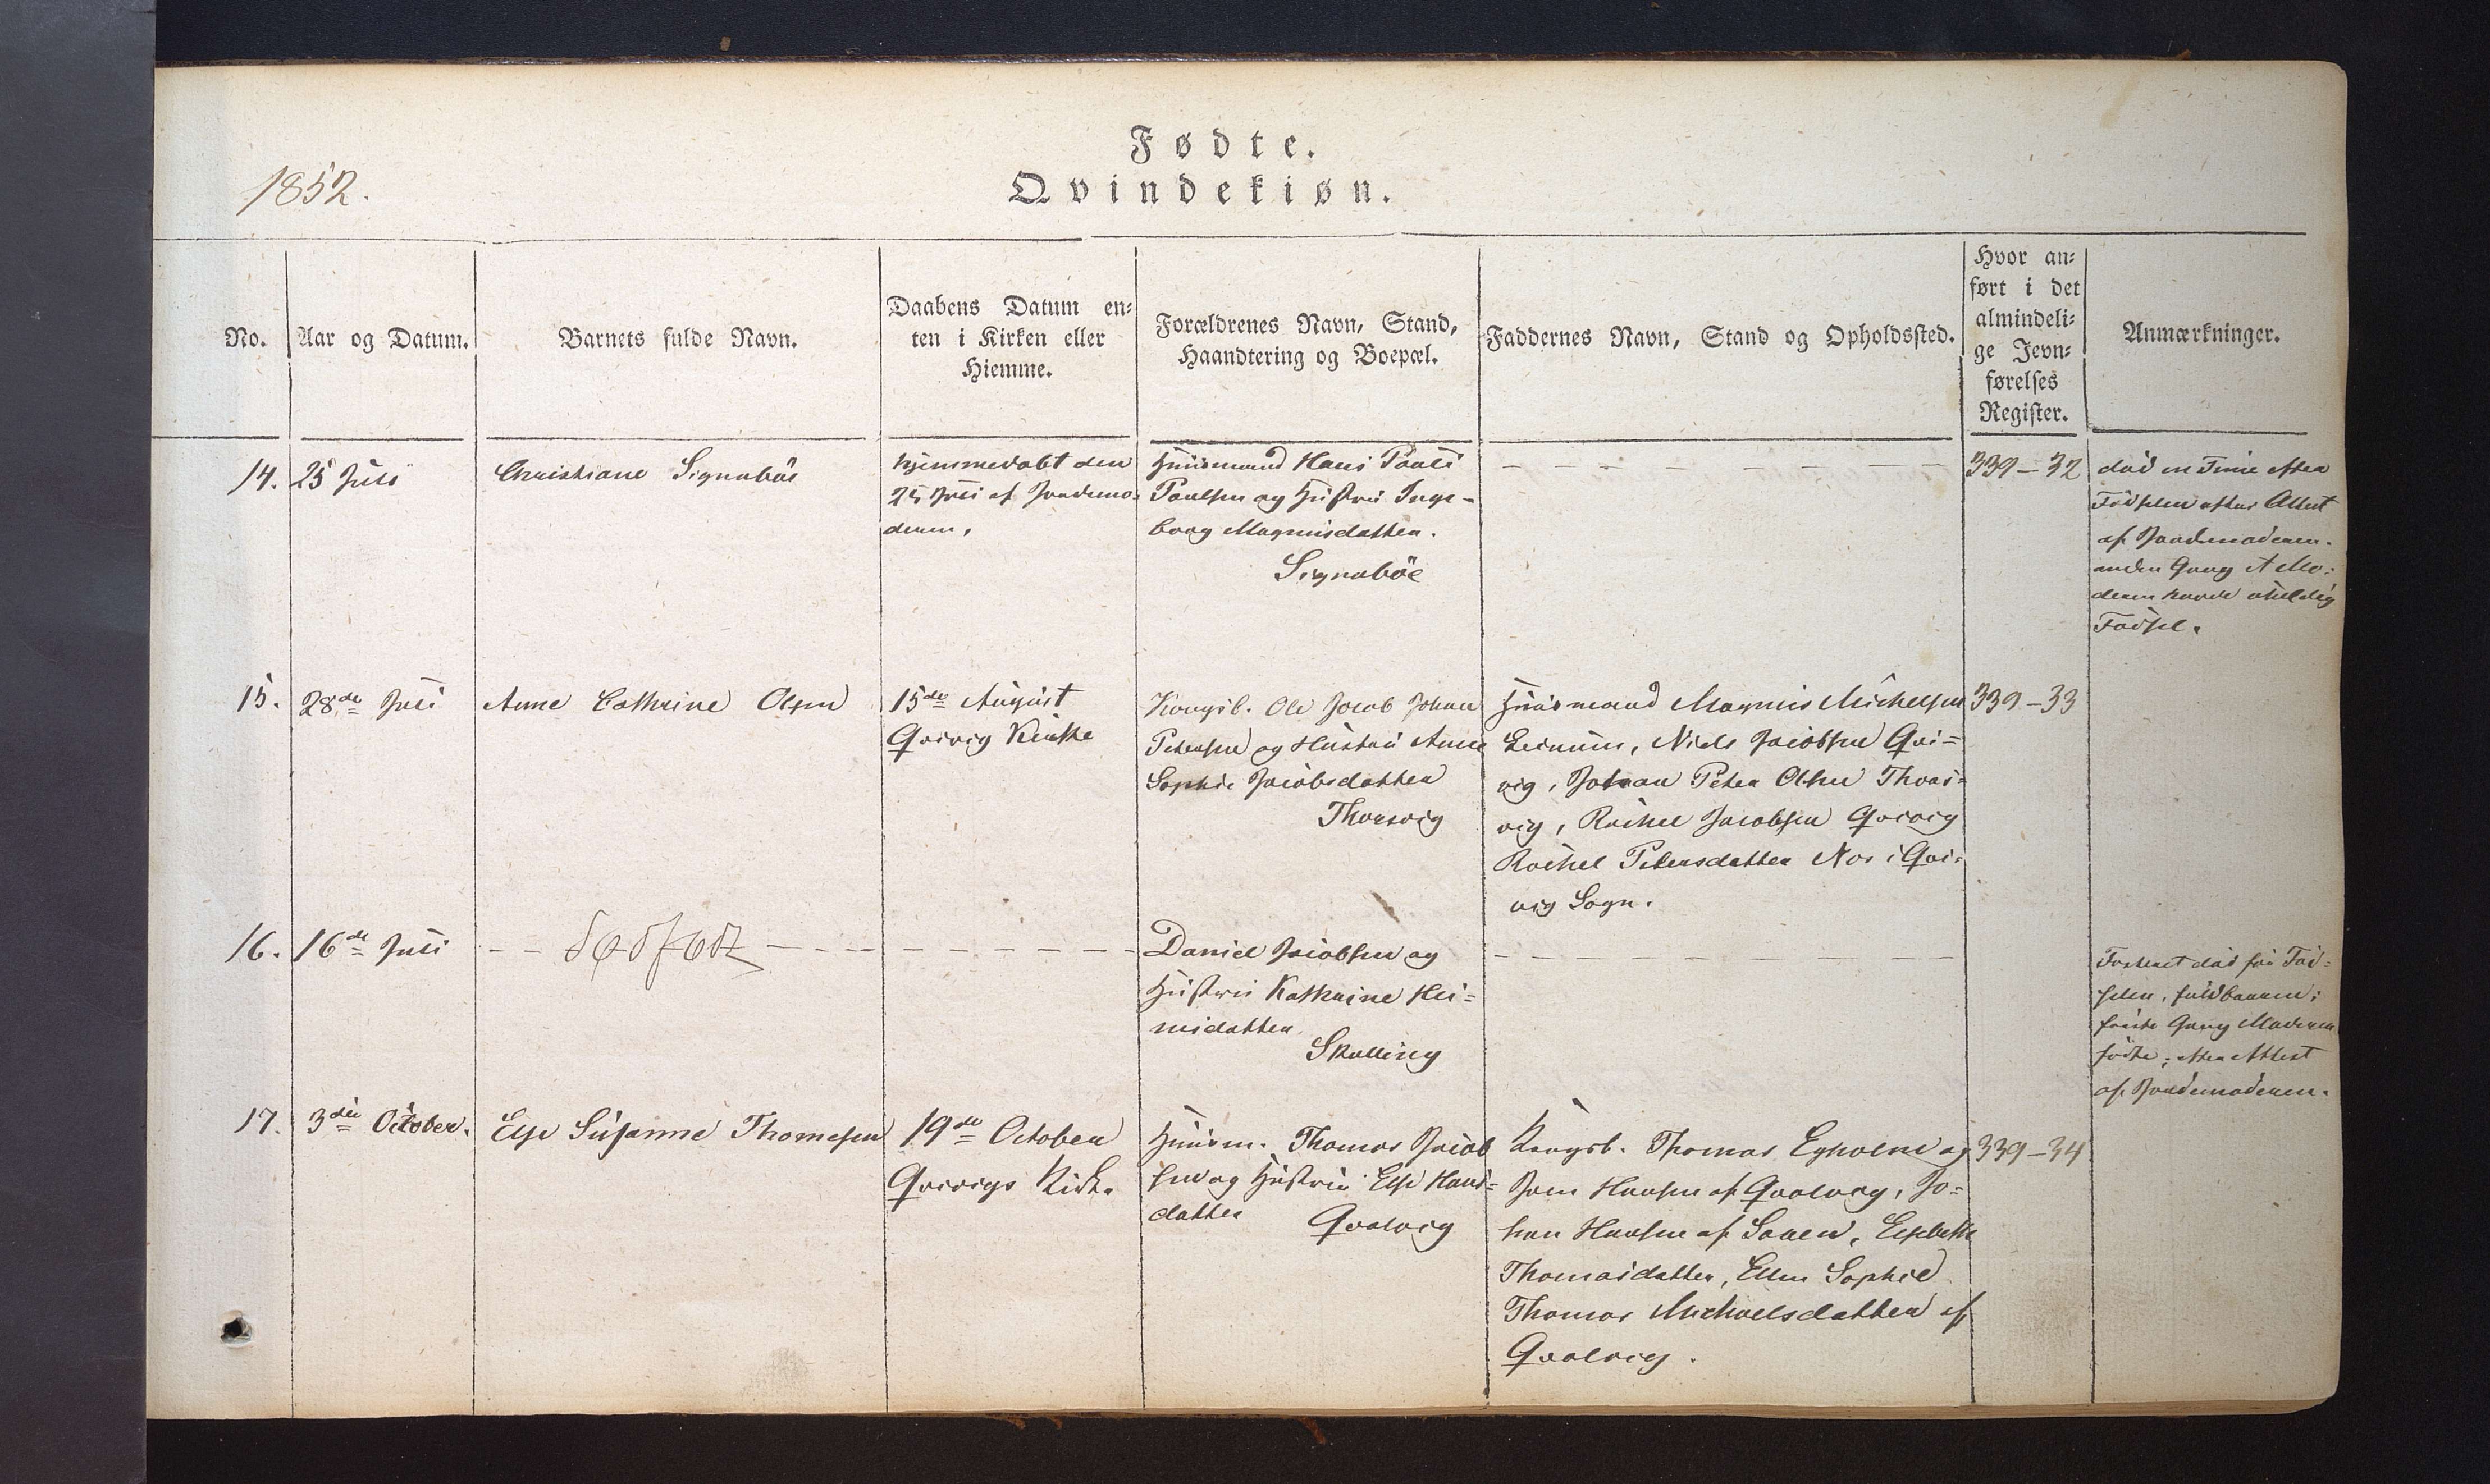 Fødte.
Qvindekiøn.
1852.
No.
Aar og Datum.
Barnets fulde Navn.
Daabens Datum en-
ten i Kirken eller
Hiemme.
Forældrenes Navn, Stand,
Haandtering og Boepæl.
Faddernes Navn, Stand og Opholdssted.
Hvor an-
ført i det
almindeli-
ge Jevn-
førelses
Register.
Anmærkninger.
14.
25 Juli
Christiane Signaböe
hjemmedøbt den
25 Juli af Jordemo-
deren.
Huusmand Hans Pauli
Poulsen og Hustru Inge-
borg Magnusdatter.
Signaböe
339-32
död en Time efter
Födselen efter Attest
af Jordemoderen.
anden Gang at Mo-
deren havde uheldig
Födsel.
15.
28de Juli
Anne Cathrine Olsen
15de August
Qvivig Kirke
Kongsb. Ole Jacob Johan
Petersen og Hustru Anne
Sophie Jacobsdatter
Thorsvig
Huusmand Magnus Michelsen
Leinum, Niels Jacobsen Qvi-
vig, Johan Peter Olsen Thors-
vig, Rachel Jacobsen Qvivig
Rachel Petersdatter Nos i Qvi-
vig Sogn.
339-33
16.
16de Juli
dødfødt
Daniel Jacobsen og
Hustru Kathrine Hei-
nisdatter
Skælling
Fosteret död för Föd-
selen, fuldbaaren;
förste Gang Moderen
födte; efter Attest
af Jordemoderen.
17.
3die October.
Else Susanne Thomesen
19de October
Qvivigs Kirke
Huusm. Thomas Jacob
sen og Hustru Else Hans-
datter
Qvalvig
Kongsb. Thomas Egholm og
Joen Hansen af Qvalvig, Jo-
han Hansen af Saxen, Elsbeth
Thomasdatter, Ellen Sophie
Thomas Michaelsdatter af
Qvalvig.
339-34